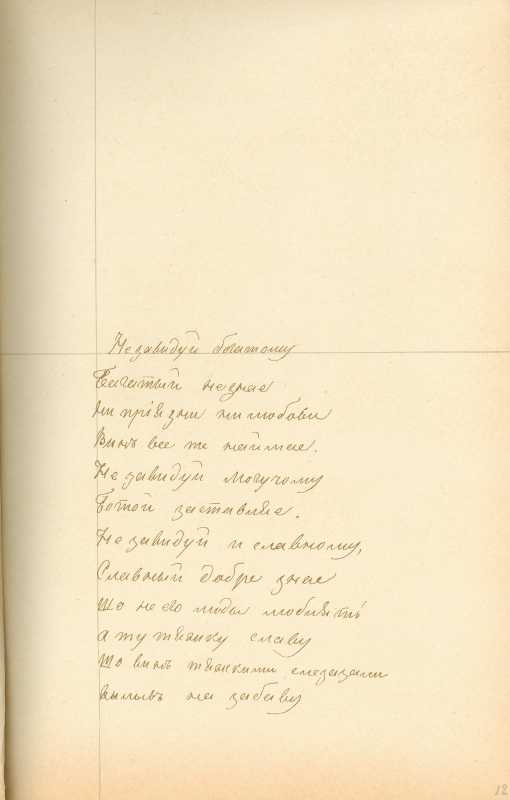 Не завидуй богатому
Багатый не знае
ни приязни ни любови
Винъ все те наймае.
Не завидуй могучому
Ботой заставляе.
Не завидуй и славному,
Славный добре знае
Що не его люды люблять
а ту тяжку славу
Що винъ тяжкими слезами
вылывъ на забаву
12